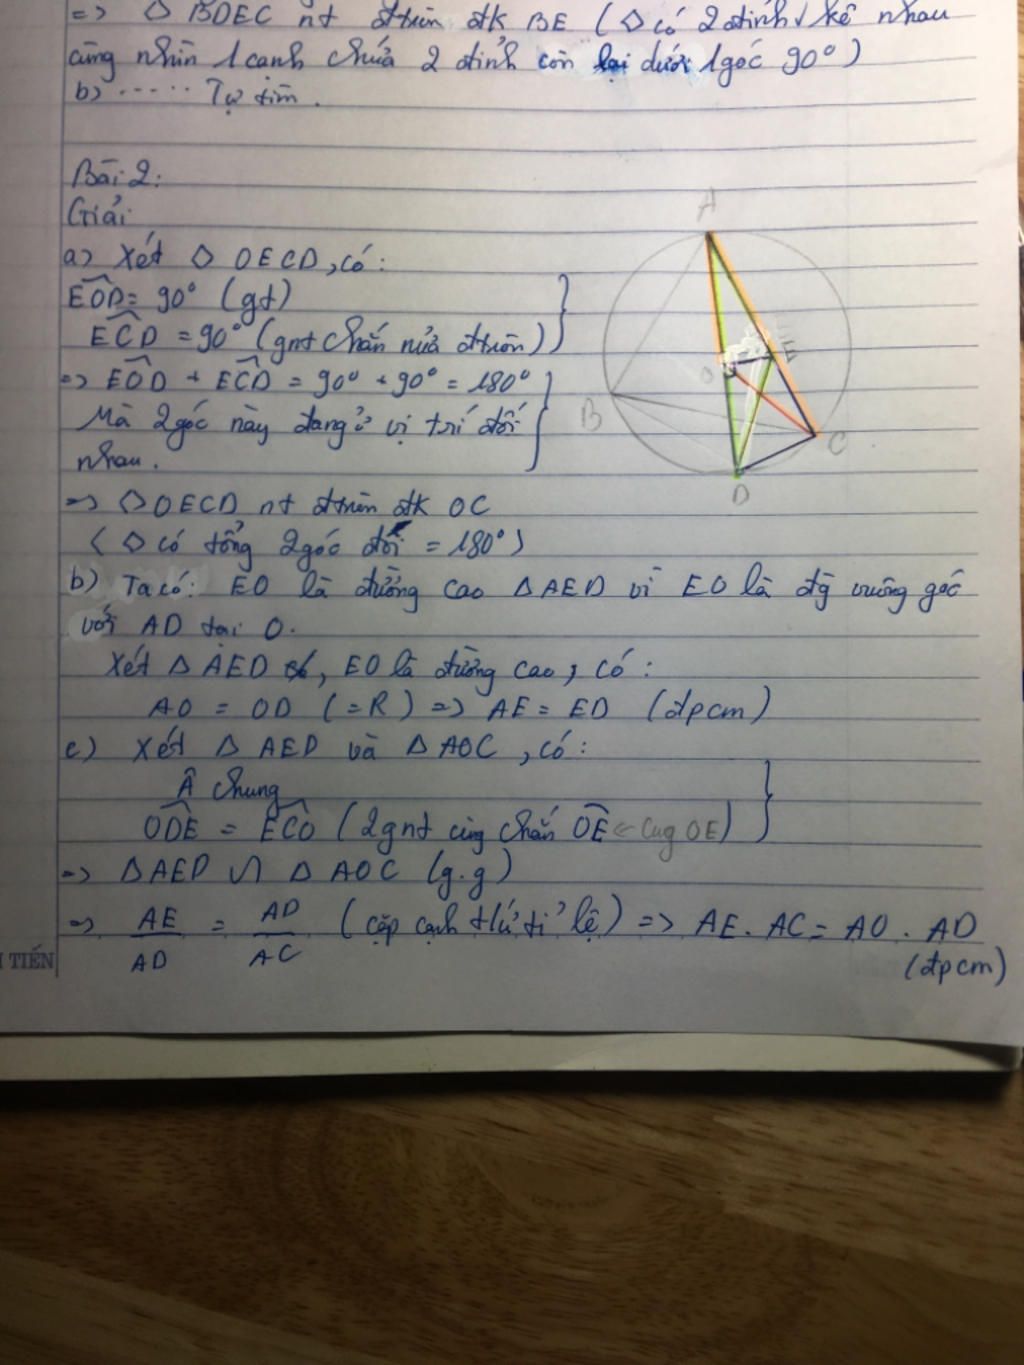 => ◇ BDEC nt đtròn đk BE (◇ có 2 đỉnh kề nhau
cùng nhìn 1 cạnh chứa 2 đỉnh còn lại dưới 1 góc 90°)
b) ...... Tự tìm.
Bài 2:
Giải
a) Xét ◇ OECD, có:
EOD = 90° (gt)
ECD = 90° (gnt chắn nửa đtròn)
=> EOD + ECD = 90° + 90° = 180°
Mà 2 góc này đang ở vị trí đối
nhau.
=> ◇ OECD nt đtròn đk OC
(◇ có tổng 2 góc đối = 180°)
b) Ta có: EO là đường cao △AED vì EO là đg vuông góc
với AD tại O.
Xét △ AED, EO là đường cao, có:
AO = OD (=R) => AE = ED (đpcm)
c) Xét △ AED và △ AOC, có:
Â chung
ODE = ECO (2 gnt cùng chắn OE <- cug OE)
=> △AED ∽ △ AOC (g.g)
=> AE/AD = AD/AC (cặp cạnh t/ứ tỉ lệ) => AE. AC = AO. AD
(đpcm)
A
B
C
D
E
O
TIẾN